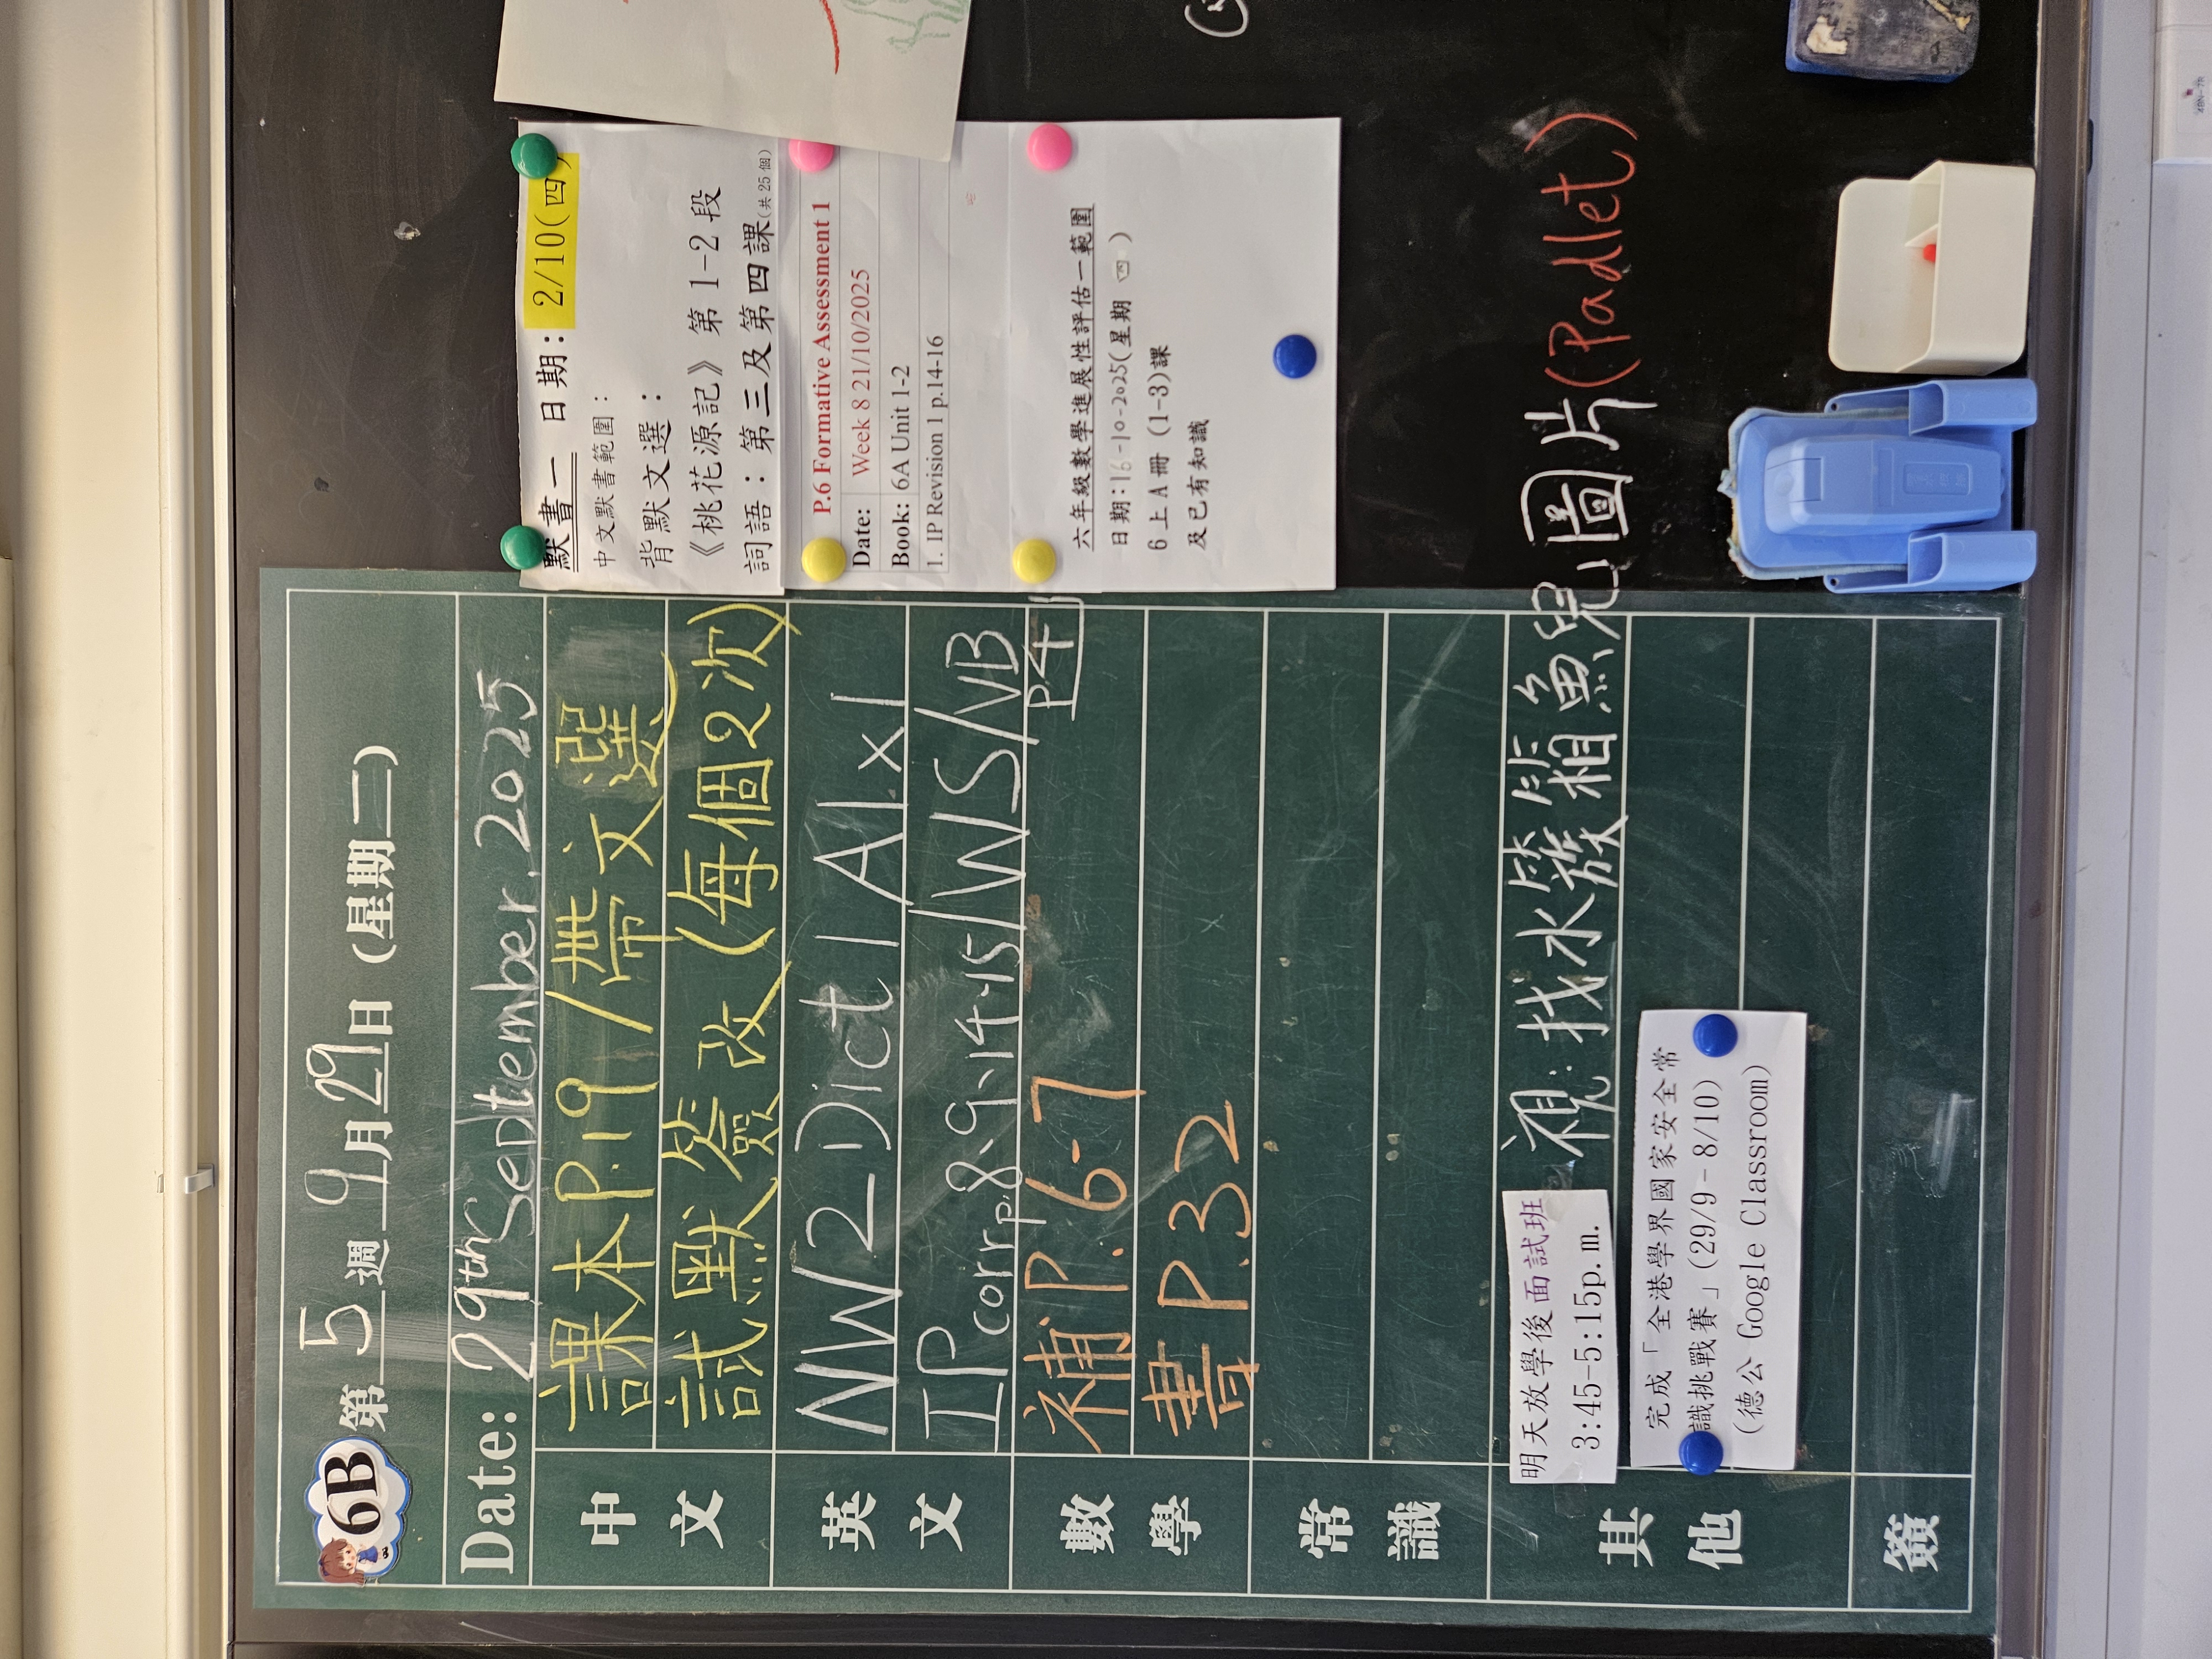 6B 第5週 9月29日 (星期二)
Date: 29th September, 2025
中文
課本P.19 / 帶文選
試默簽改 (每個2次)
英文
NW2 Dict 1 A1x1
IP corr p.8,9,14,15/WS/NB
P.4
數學
補P.6-7
書P.32
常識
其他
明天放學後面試班
3:45-5:15p.m.
視: 找水簇箱魚兒圖片(Padlet)
完成「全港學界國家安全常
識挑戰賽」(29/9-8/10)
(德公 Google Classroom)
簽
默書一 日期: 2/10(四)
中文默書範圍:
背默文選:
《桃花源記》第1-2段
詞語: 第三及第四課(共25個)
P.6 Formative Assessment 1
Date: Week 8 21/10/2025
Book: 6A Unit 1-2
1. IP Revision 1 p.14-16
六年級數學進展性評估一範圍
日期:16-10-2025(星期四)
6上A冊 (1-3)課
及已有知識